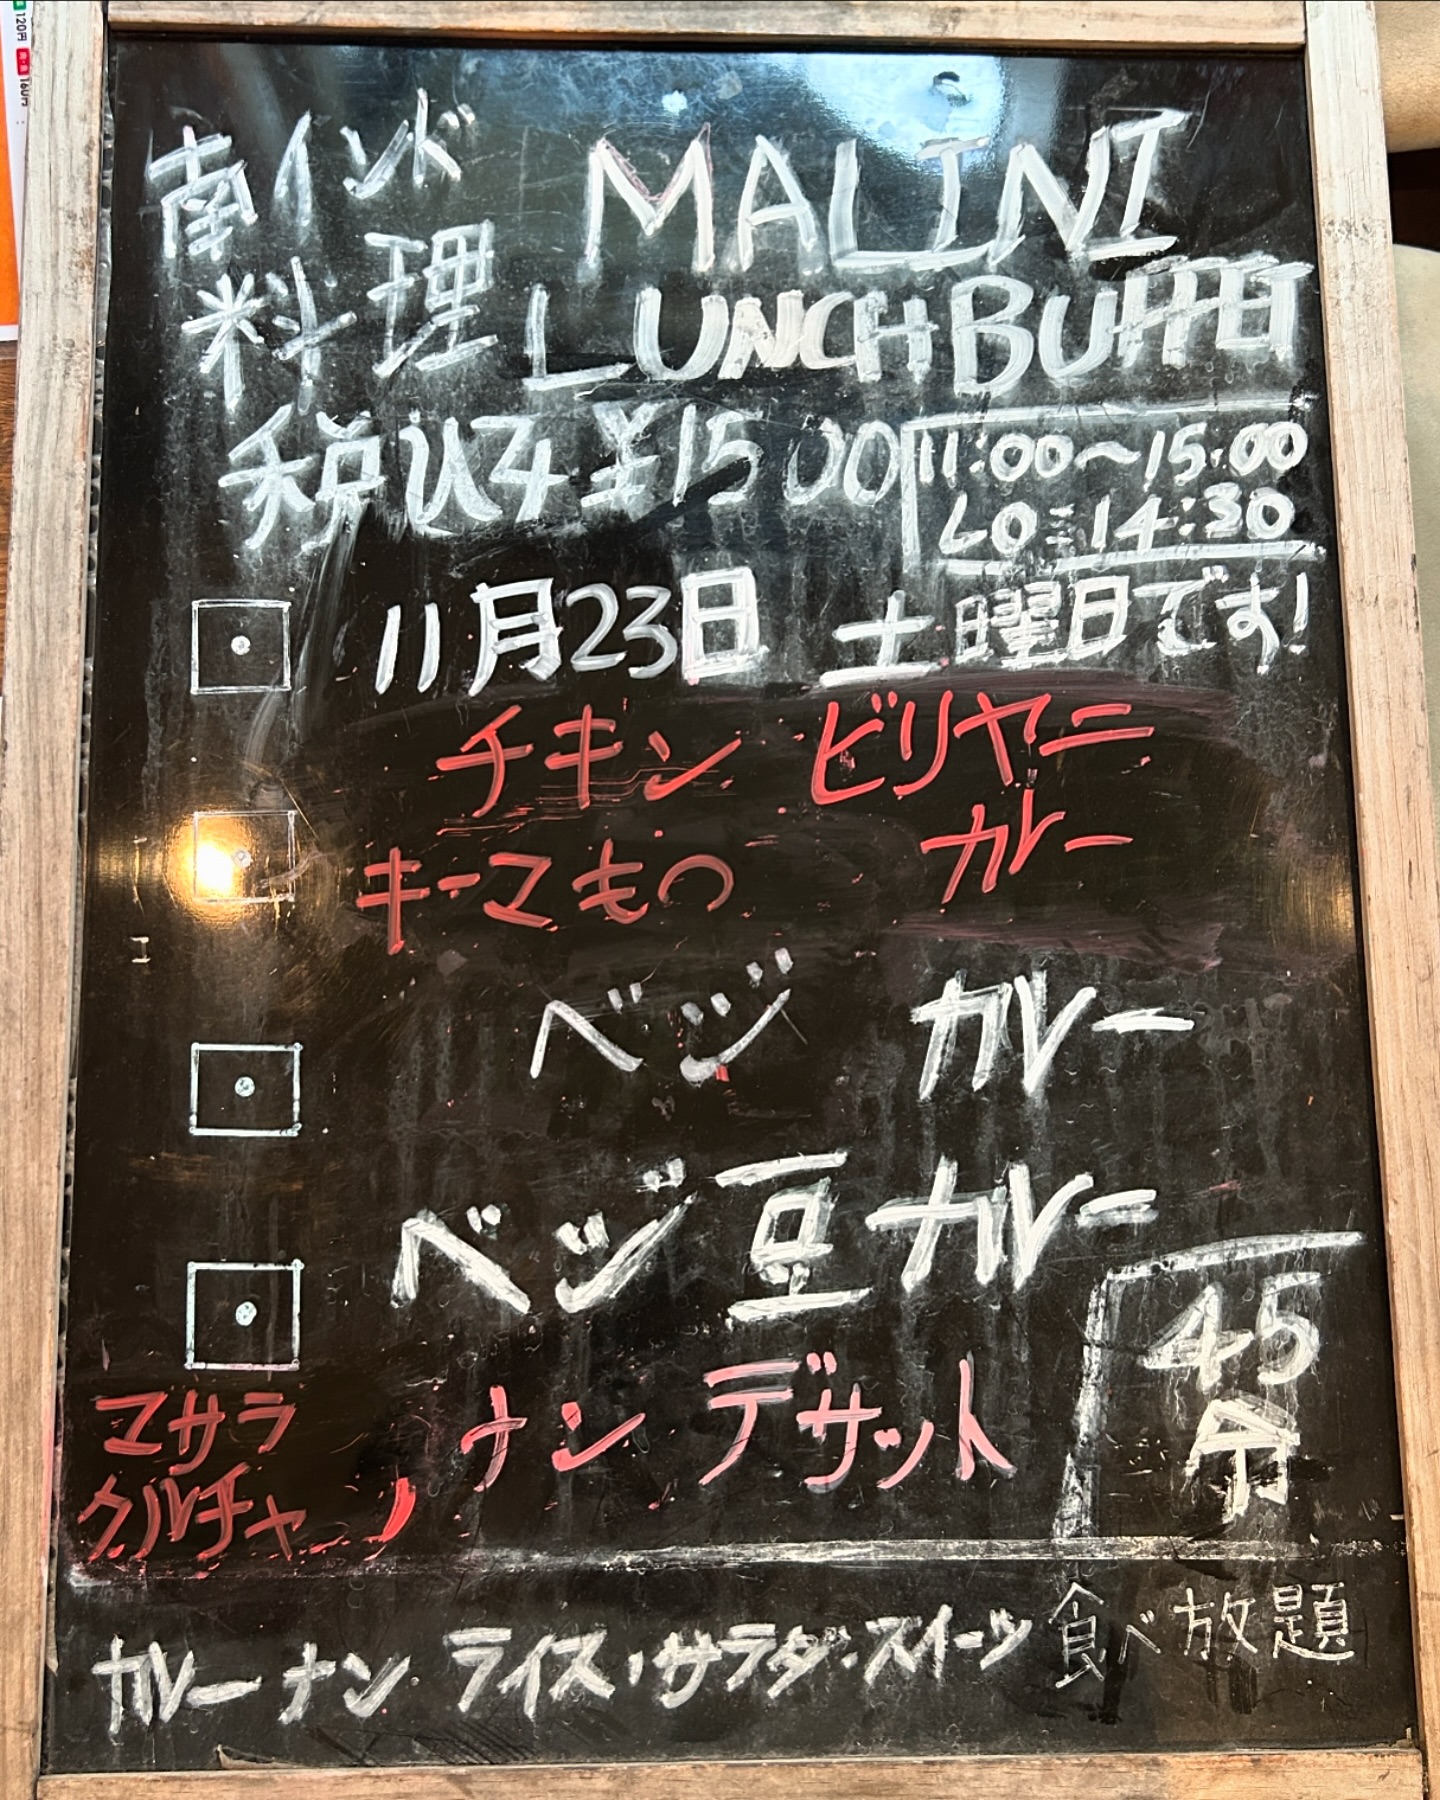 120円 160円
南インド MALINI
料理 LUNCH BUFFET
税込み¥1500 11:00~15:00
LO:14:30
11月23日 土曜日です!
チキン ビリヤニ
キーマもの カレー
ベジ カレー
ベジ豆カレー
45
分
マサラ ナン デザット
クルチャ
カレーナン ライス・サラダ・スイーツ食べ放題